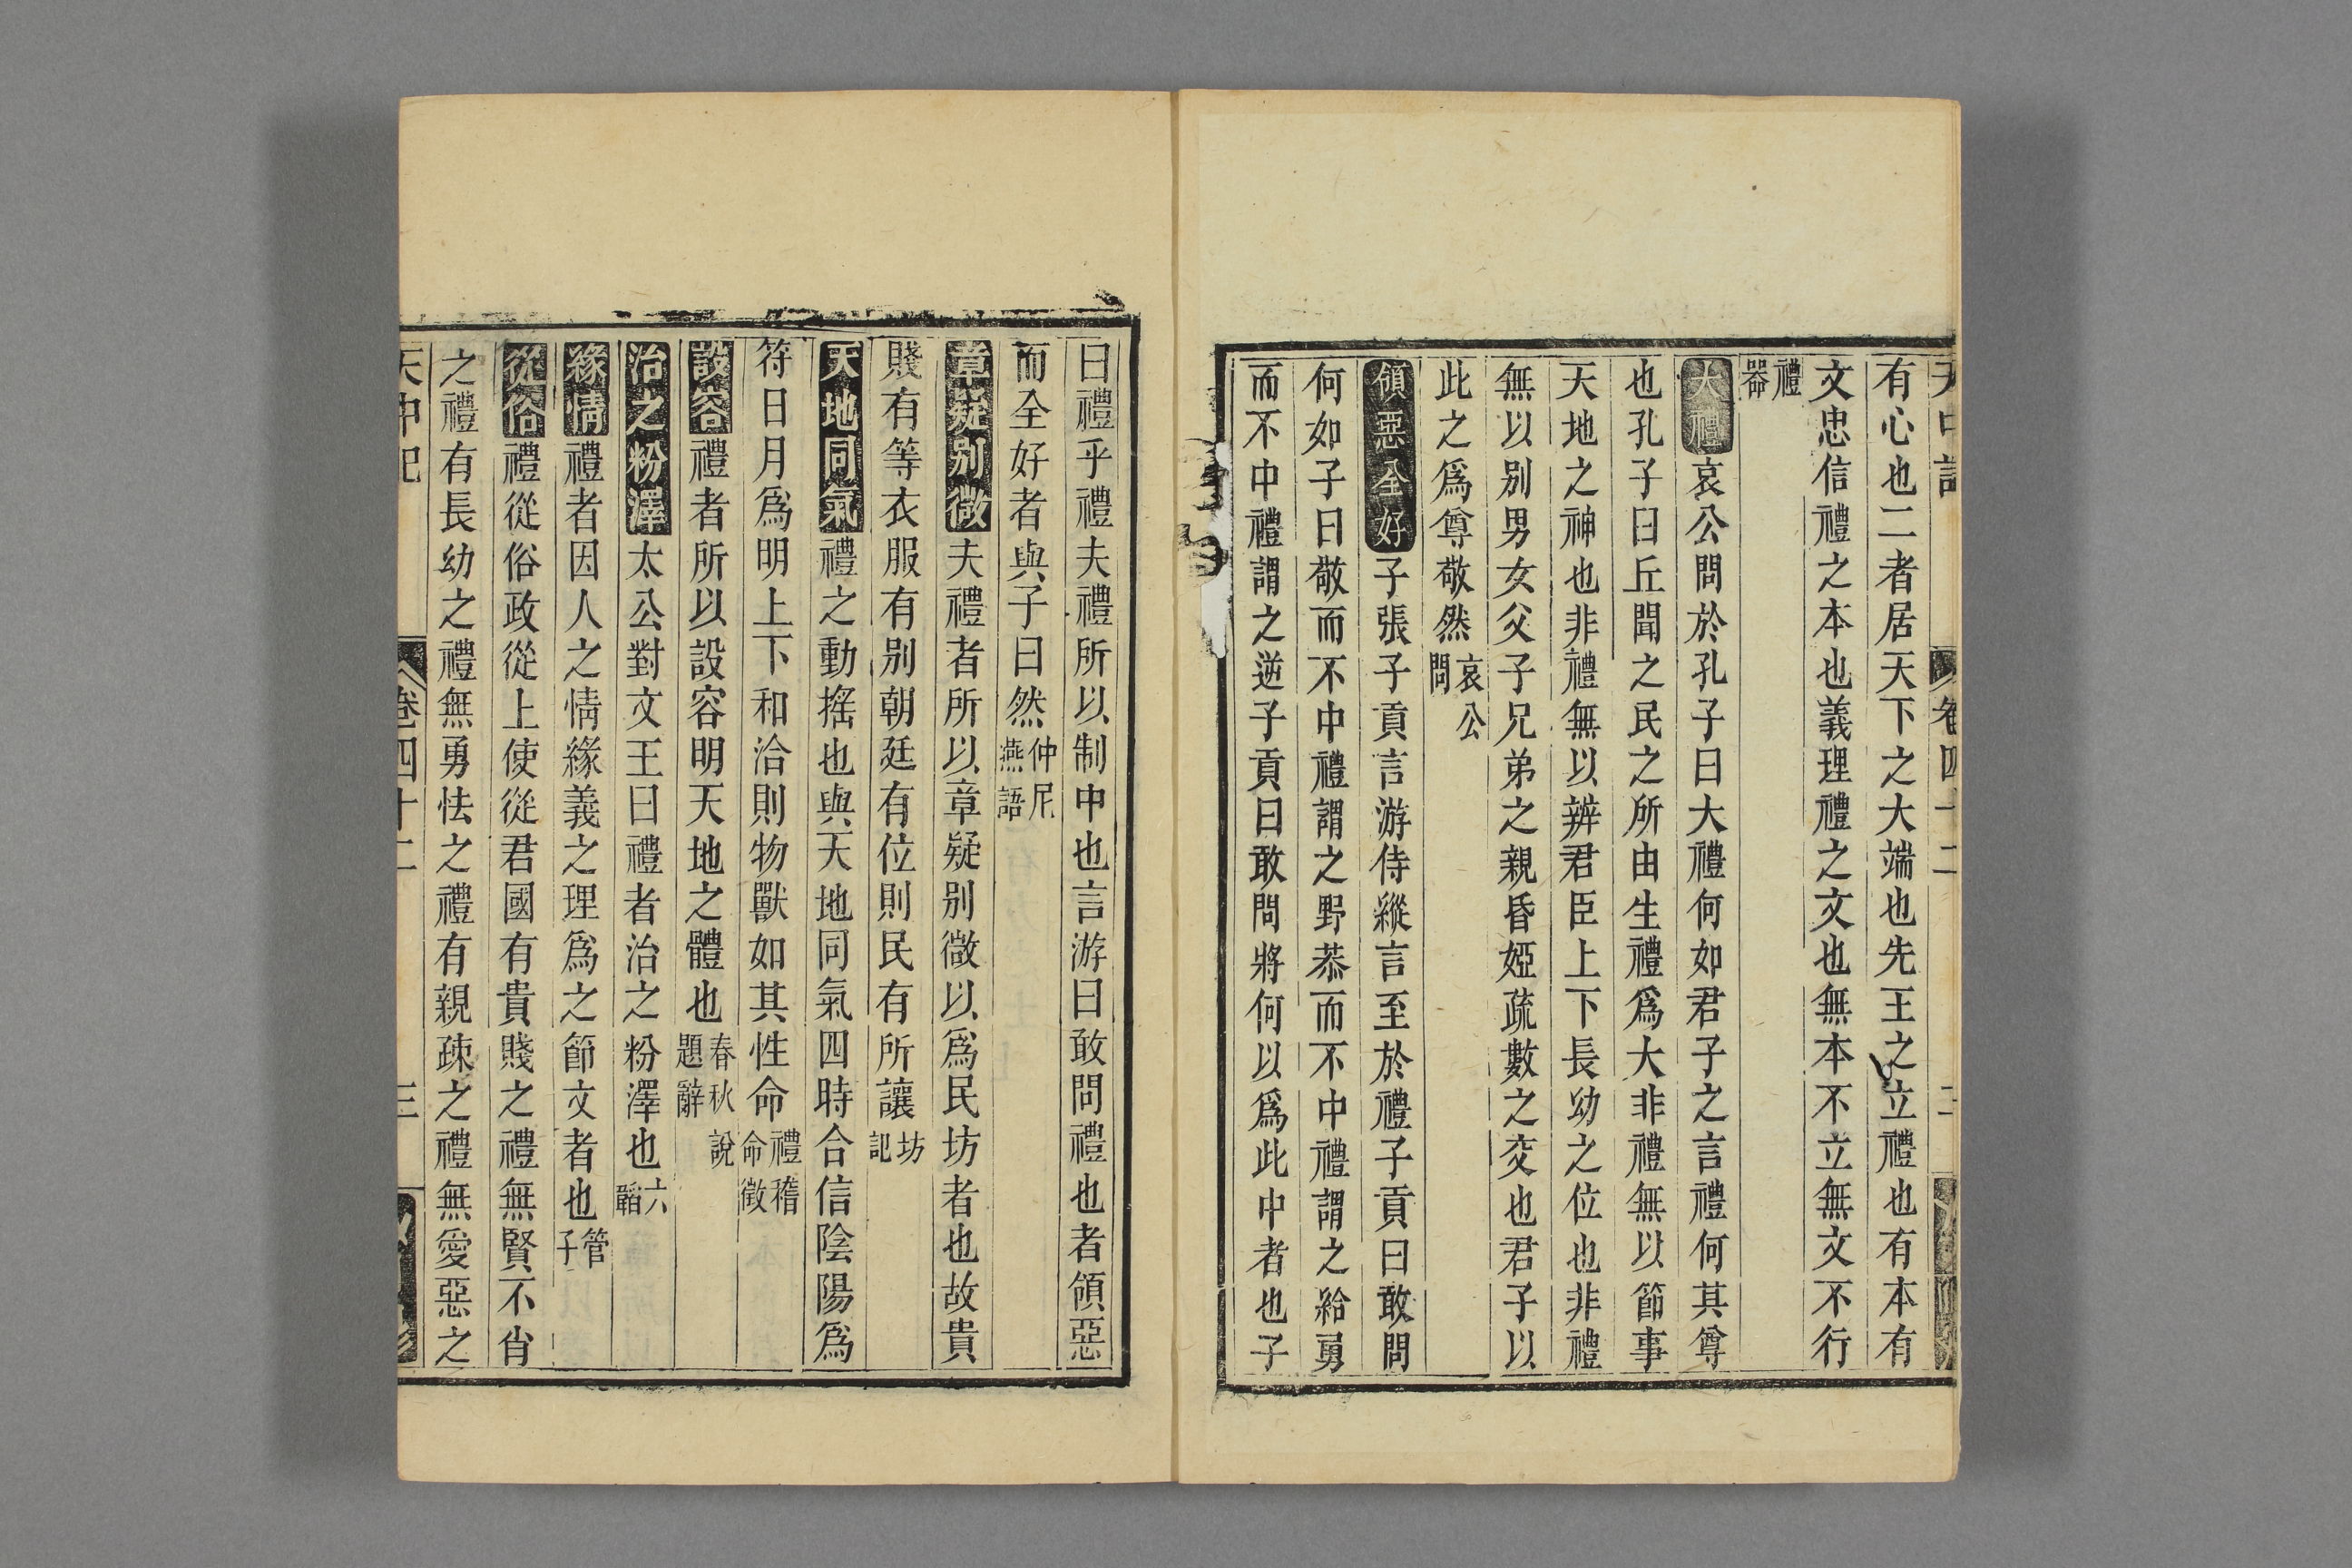 天中記 卷四十二 二
有心也二者居天下之大端也先王之立禮也有本有
文忠信禮之本也義理禮之文也無本不立無文不行
禮器
大禮哀公問於孔子曰大禮何如君子之言禮何其尊
也孔子曰丘聞之民之所由生禮爲大非禮無以節事
天地之神也非禮無以辨君臣上下長幼之位也非禮
無以別男女父子兄弟之親昏婭疏數之交也君子以
此之爲尊敬然哀公問
領惡全好子張子貢言游侍縱言至於禮子貢曰敢問
何如子曰敬而不中禮謂之野恭而不中禮謂之給勇
而不中禮謂之逆子貢曰敢問將何以爲此中者也子
曰禮乎禮夫禮所以制中也言游曰敢問禮也者領惡
而全好者與子曰然仲尼燕語
章疑別微夫禮者所以章疑別微以爲民坊者也故貴
賤有等衣服有別朝廷有位則民有所讓坊記
天地同氣禮之動搖也與天地同氣四時合信陰陽爲
符日月爲明上下和洽則物獸如其性命禮稽命徵
設容禮者所以設容明天地之體也春秋說題辭
治之粉澤太公對文王曰禮者治之粉澤也六韜
緣情禮者因人之情緣義之理爲之節文者也管子
從俗禮從俗政從上使從君國有貴賤之禮無賢不肖
之禮有長幼之禮無勇怯之禮有親疎之禮無愛惡之
天中記 卷四十二 三